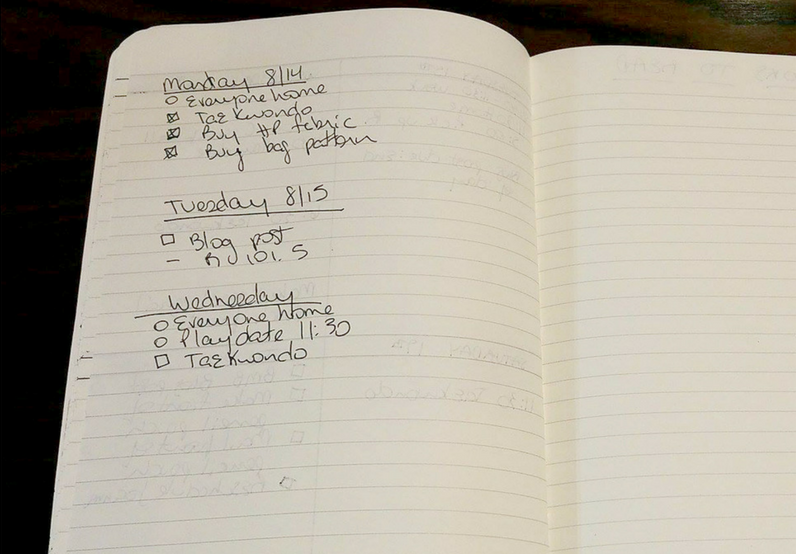 Monday 8/14
○ Everyone home
☒ Taekwondo
☒ Buy HP fabric
☒ Buy bag pattern
Tuesday 8/15
☐ Blog post
– BJ 101.5
Wednesday
○ Everyone home
○ Playdate 11:30
☐ Taekwondo